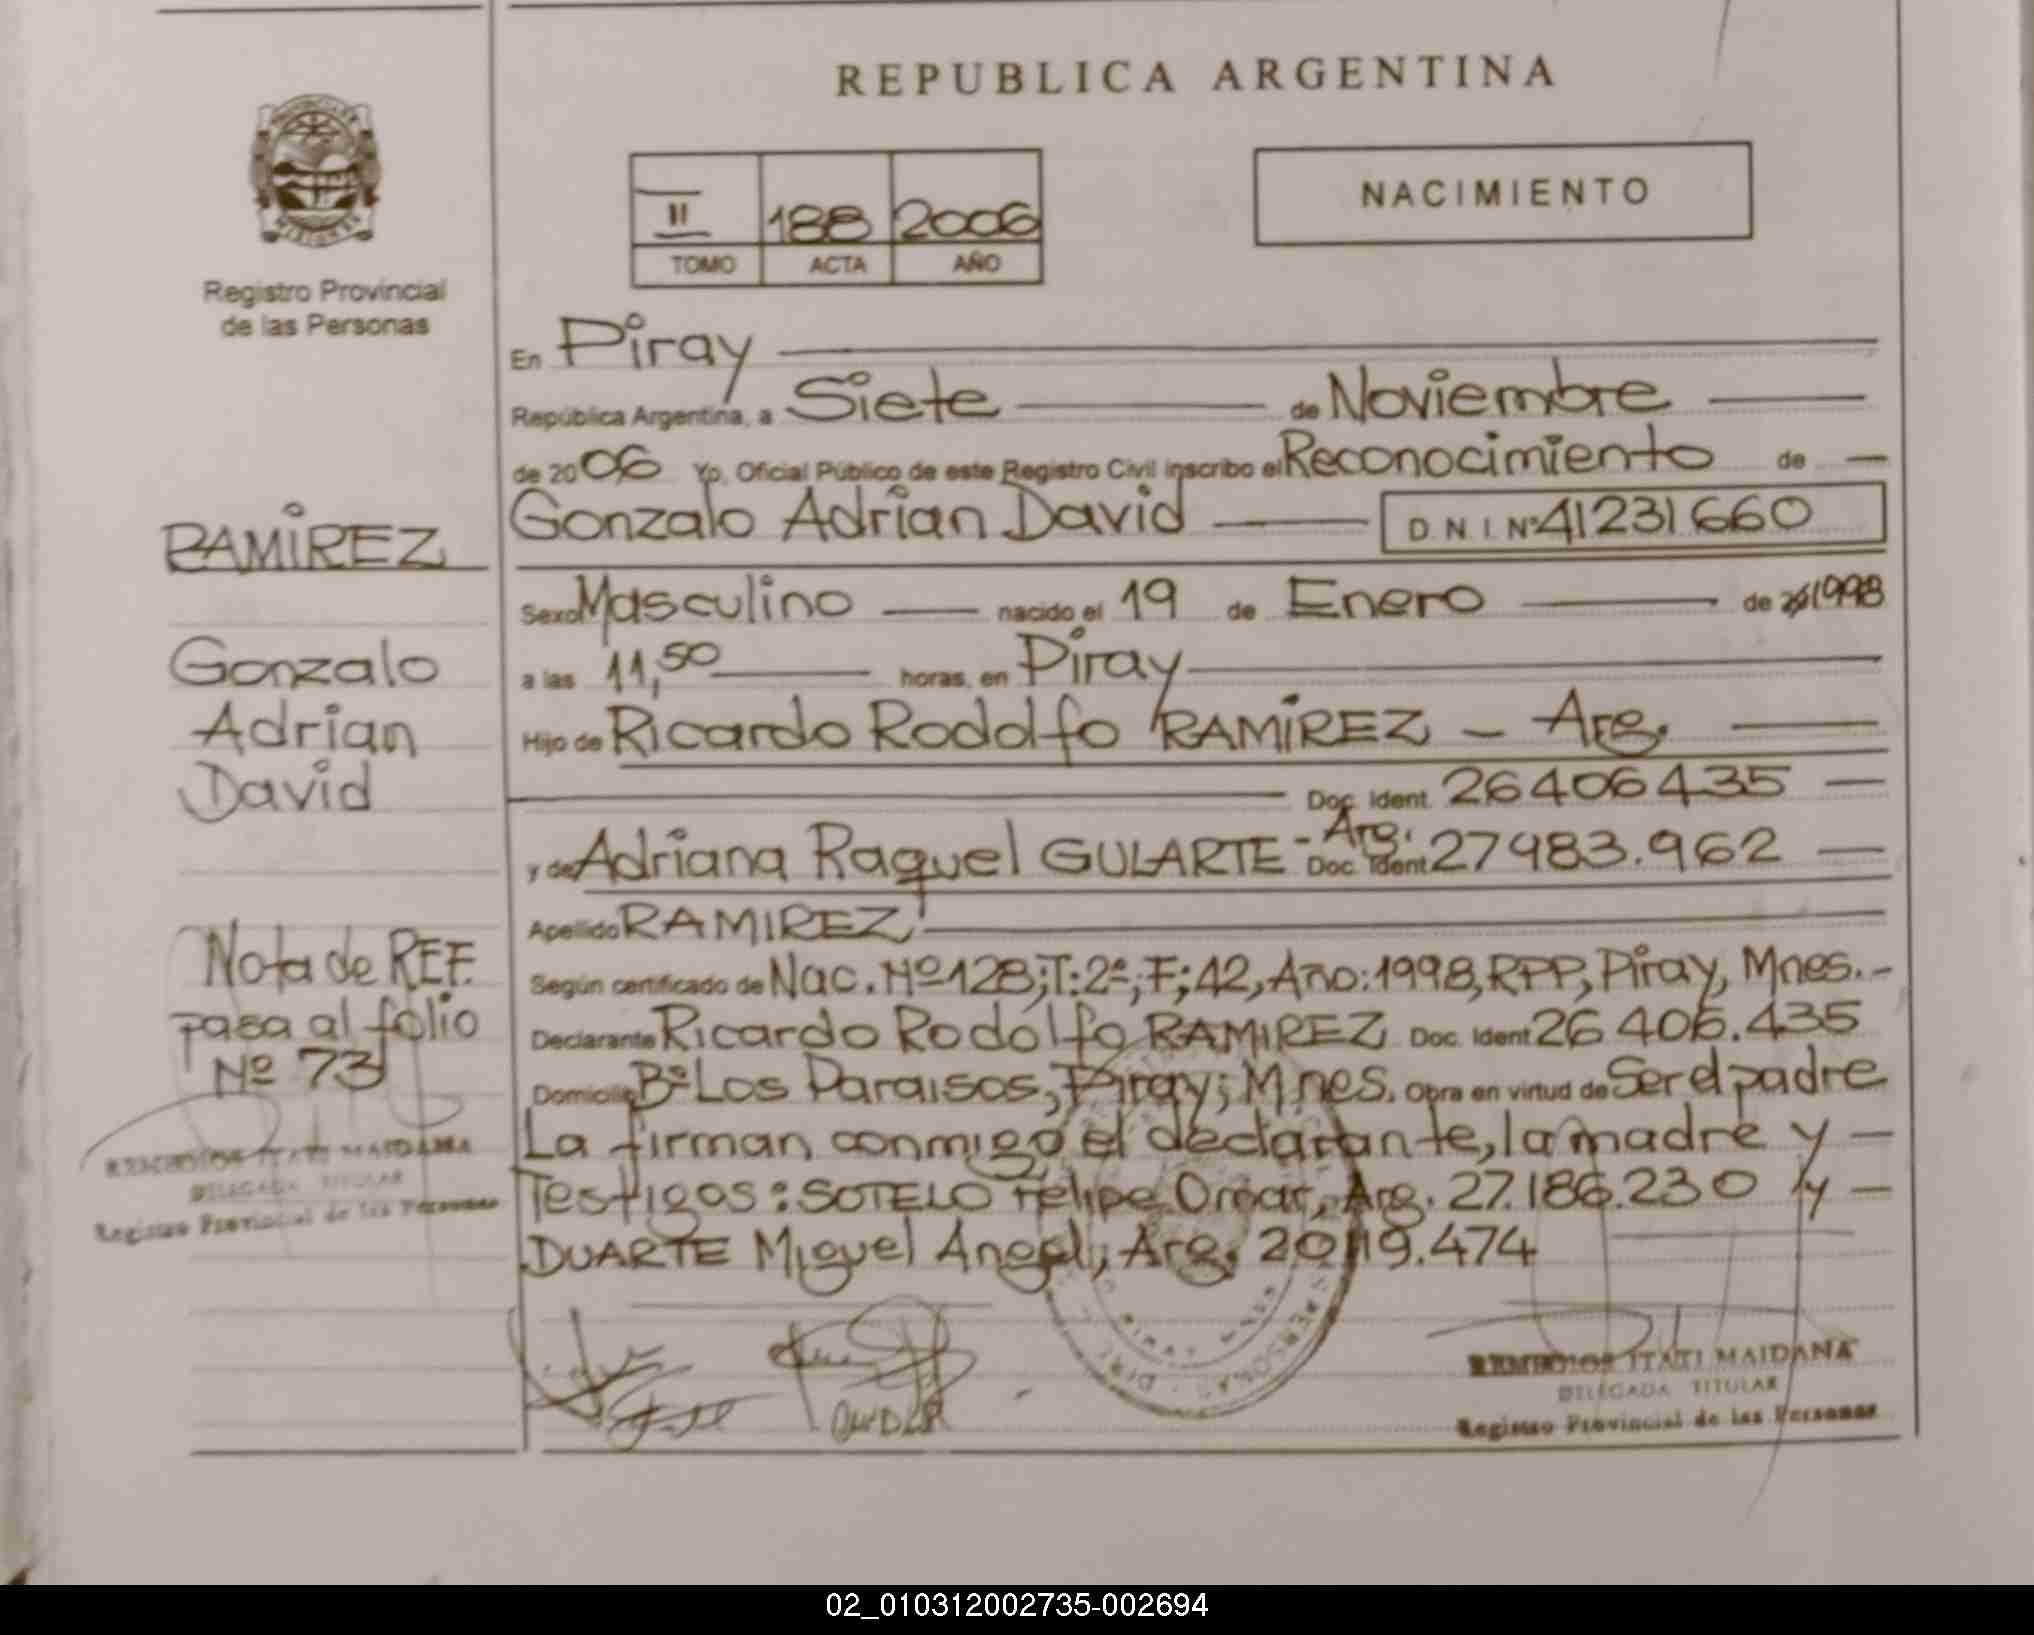 REPUBLICA ARGENTINA
NACIMIENTO
II 188 2006
TOMO ACTA AÑO
MISIONES
Registro Provincial
de las Personas
En Piray
República Argentina, a Siete de Noviembre
de 2006 Yo, Oficial Público de este Registro Civil inscribo el Reconocimiento de
RAMIREZ
Gonzalo
Adrian
David
Gonzalo Adrian David D.N.I. Nº 41231660
Sexo Masculino nacido el 19 de Enero de 1998
a las 11,50 horas, en Piray
Hijo de Ricardo Rodolfo RAMIREZ - Arg.
Doc. Ident. 26406435
y de Adriana Raquel GULARTE - Arg. Doc. Ident 27983.962
Apellido RAMIREZ
Según certificado de Nac. Nº 128; T: 2º; F; 42, Año: 1998, RPP, Piray, Mnes.-
Declarante Ricardo Rodolfo RAMIREZ Doc. Ident 26 406.435
Domicilio Bº Los Paraisos, Piray; Mnes. Obra en virtud de Ser el padre
La firman conmigo el declarante, la madre y
Testigos: SOTELO Felipe Omar, Arg. 27.186.230 y
DUARTE Miguel Angel, Arg. 20.119.474
Nota de REF.
pasa al folio
Nº 73
REMEDIOS ITATI MAIDANA
DELEGADA TITULAR
Registro Provincial de las Personas
REMEDIOS ITATI MAIDANA
DELEGADA TITULAR
Registro Provincial de las Personas
02_010312002735-002694